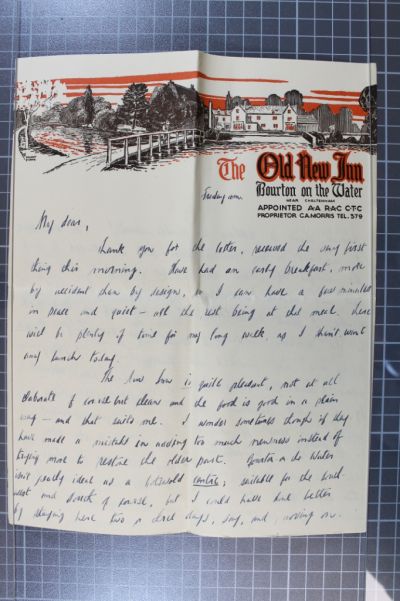 The Old New Inn
Bourton on the Water
NEAR CHELTENHAM
APPOINTED A·A R·A·C C·T·C
PROPRIETOR C.A.MORRIS TEL. 379
Sunday
My dear,
Thank you for the letter, received the very first
thing this morning. Have had an early breakfast, more
by accident than by design, so I can have a few minutes
in peace and quiet – all the rest being at this meal. There
will be plenty of time for my long walk, as I shan't want
any lunch today.
The Inn here is quite pleasant, not at all
elaborate of course but clean and the food is good in a plain
way – and that suits me. I wonder sometimes though if they
have made a mistake in adding too much newness instead of
trying more to restore the older part. Bourton on the Water
isn't really ideal as a Cotswold centre; suitable for the
west and south of course, but I could have done better
by staying here two or three days, say, and moving on.